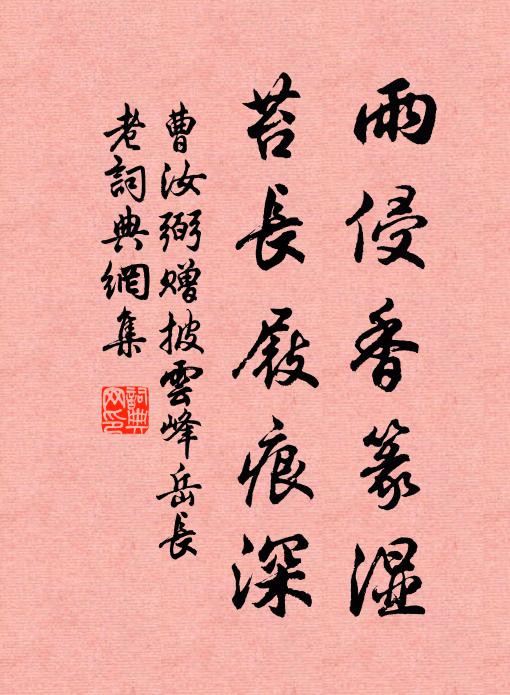 雨侵香篆湿
苔長屐痕深
曹汝弼贈披雲峰岳長
老詞典網集
詞典网印